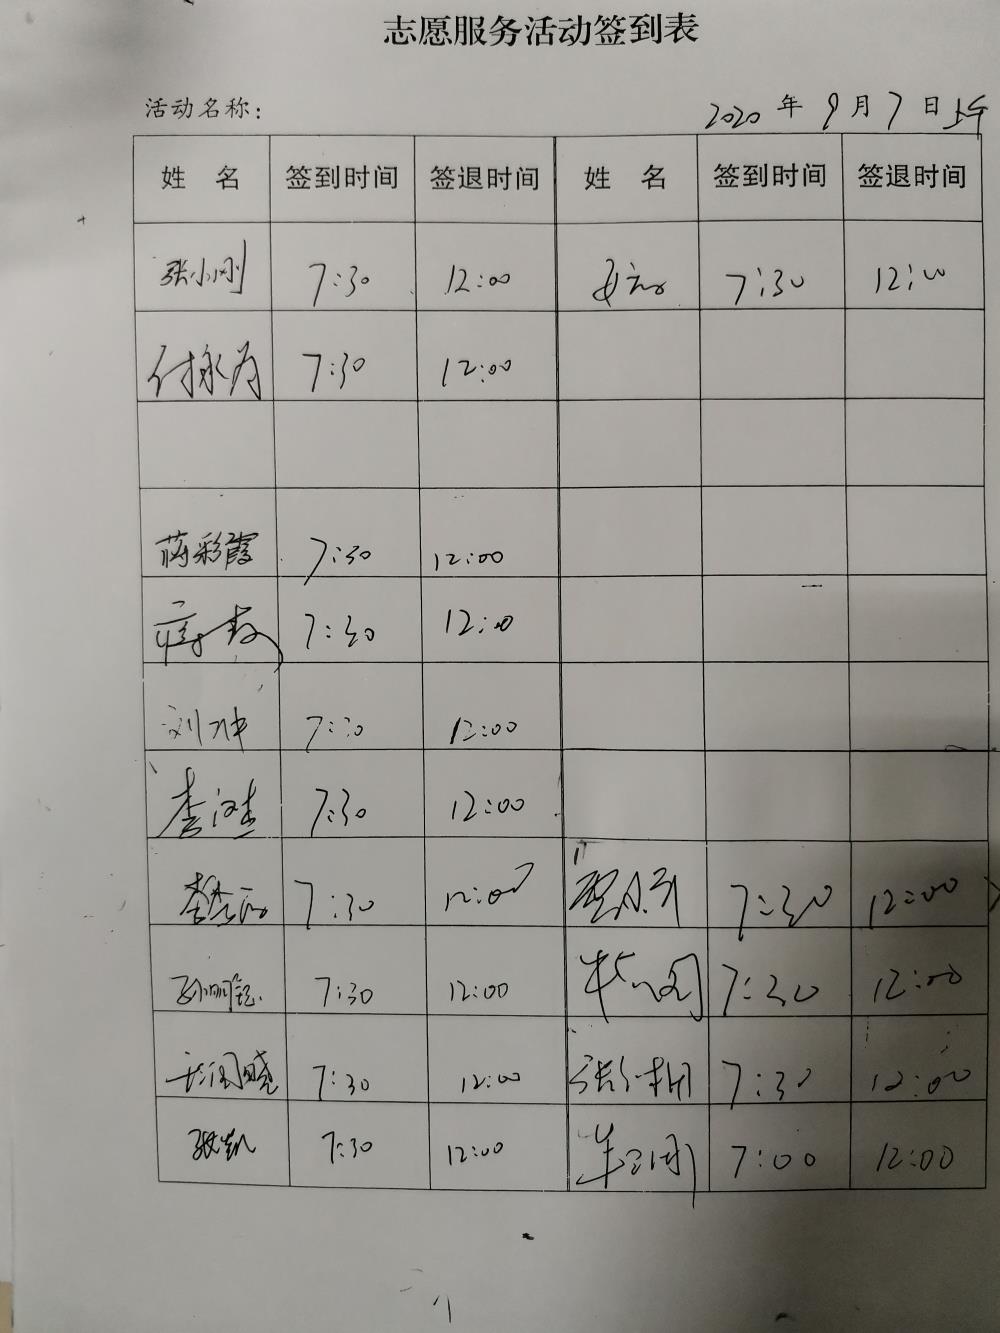 志愿服务活动签到表
活动名称: 2020 年 9 月 7 日 上午
姓 名 签到时间 签退时间 姓 名 签到时间 签退时间
张小刚 7:30 12:00 7:30 12:00
付永为 7:30 12:00
蒋彩霞 7:30 12:00
7:30 12:00
刘冲 7:30 12:00
李 7:30 12:00
7:30 12:00 7:30 12:00
孙明 7:30 12:00 7:30 12:00
7:30 12:00 张 7:30 12:00
张凯 7:30 12:00 7:00 12:00